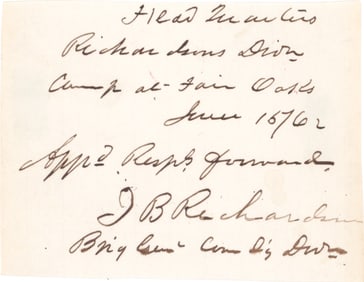 Head Quarters
Richardsons Divn
Camp at Fair Oaks
June 15/62
Appd. Respy. forward.
I B Richardson
Brig Genl Comdg Divn